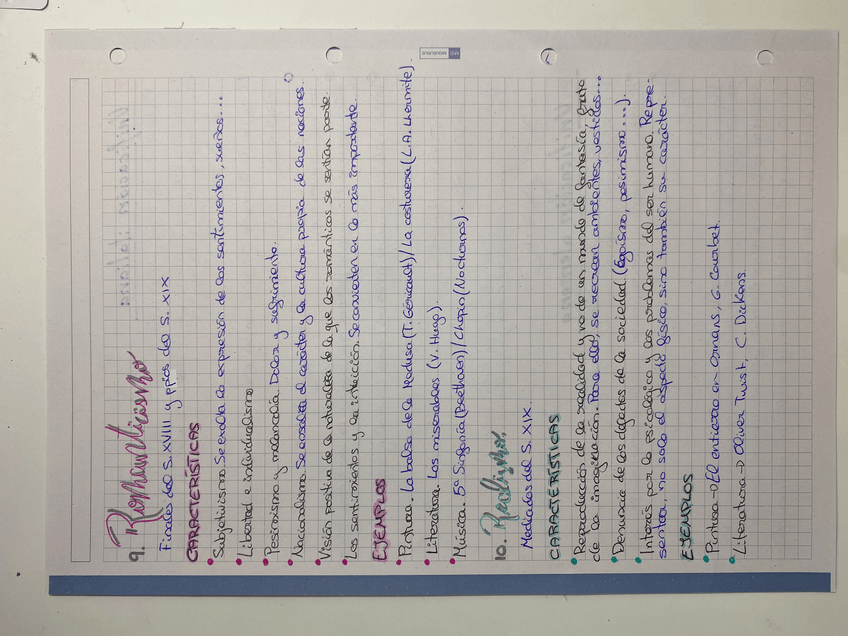 9. Romanticismo
Finales del S. XVIII y ppios del S. XIX
CARACTERÍSTICAS
• Subjetivismo. Se exalta la expresión de los sentimientos, sueños...
• Libertad e individualismo
• Pesimismo y melancolía. Dolor y sufrimiento.
• Nacionalismo. Se ensalza el carácter y la cultura propia de las naciones.
• Visión positiva de la naturaleza de la que los románticos se sentían parte.
• Los sentimientos y la intuición. Se convierten en lo más importante.
EJEMPLOS
• Pintura. La balsa de la Medusa (T. Géricault) / La costurera (L.A. Lhermite).
• Literatura. Los miserables (V. Hugo).
• Música. 5ª Sinfonía (Beethoven) / Chopin (Nocturnos).
10. Realismo.
Mediados del S. XIX
CARACTERÍSTICAS
• Reproducción de la realidad y no de un mundo de fantasía, fruto
de la imaginación. Para ello, se recrean ambientes, vestidos...
• Denuncia de los defectos de la sociedad (Egoísmo, pesimismo...).
• Interés por lo psicológico y los problemas del ser humano. Repre-
sentar, no solo el aspecto físico, sino también su carácter.
EJEMPLOS
• Pintura → El entierro en Ornans, G. Courbet.
• Literatura → Oliver Twist, C. Dickens